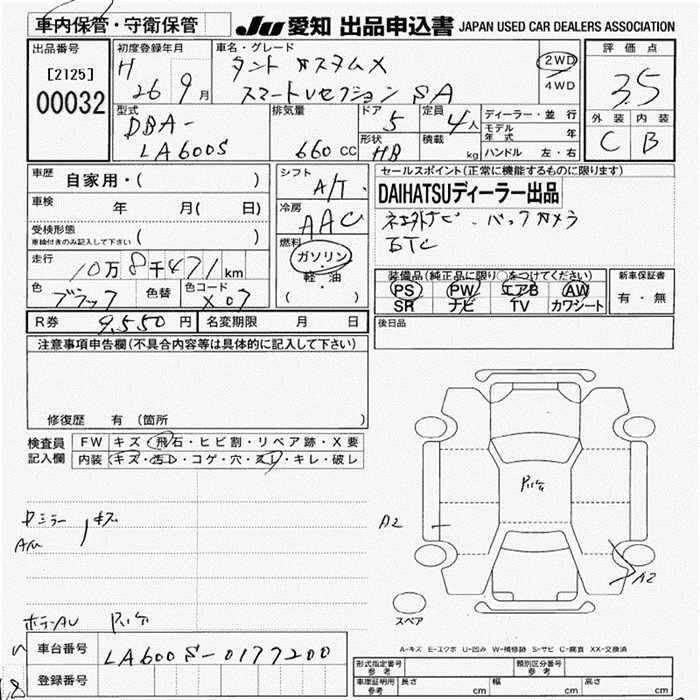 車内保管・守衛保管
JU 愛知 出品申込書 JAPAN USED CAR DEALERS ASSOCIATION
出品番号
[2125]
00032
初度登録年月
H 26 9月
車名・グレード
タント カスタムX
スマートVセクション SA
2WD
4WD
評価点
3.5
外装 内装
C B
型式
DBA-
LA600S
排気量
660 CC
ドア 5
形状 HB
定員 4人
積載 kg
ディーラー・並行
モデル年式 年
ハンドル 左・右
車歴 自家用・( )
車検 年 月( 日)
受検形態
車検付きのみ記入して下さい ( )
走行 10万8千471km
色 ブラック 色替 色コード X07
シフト A/T
冷房 AAC
燃料
ガソリン
軽・油
( )
セールスポイント(正常に機能するものに限ります)
DAIHATSUディーラー出品
社外ナビ・バックカメラ
ETC
装備品(純正品に限り○をつけてください)
PS PW エアB AW
SR ナビ TV カワシート
新車保証書
有・無
R券 9,550円 名変期限 月 日
後日品
注意事項申告欄(不具合内容等は具体的に記入して下さい)
修復歴 有 (箇所 )
検査員記入欄
FW キズ・飛石・ヒビ割・リペア跡・X要
内装 キズ・汚レ・コゲ・穴・スレ・キレ・破レ
ミラー キズ
A2
A2
スペア
A-キズ E-エクボ U-凹み W-補修跡 S-サビ C-腐食 XX-交換済
車台番号 LA600S-0177200
登録番号
形式指定番号 参考
類別区分番号 参考
車庫証明用 参考 長さ cm 幅 cm 高さ cm